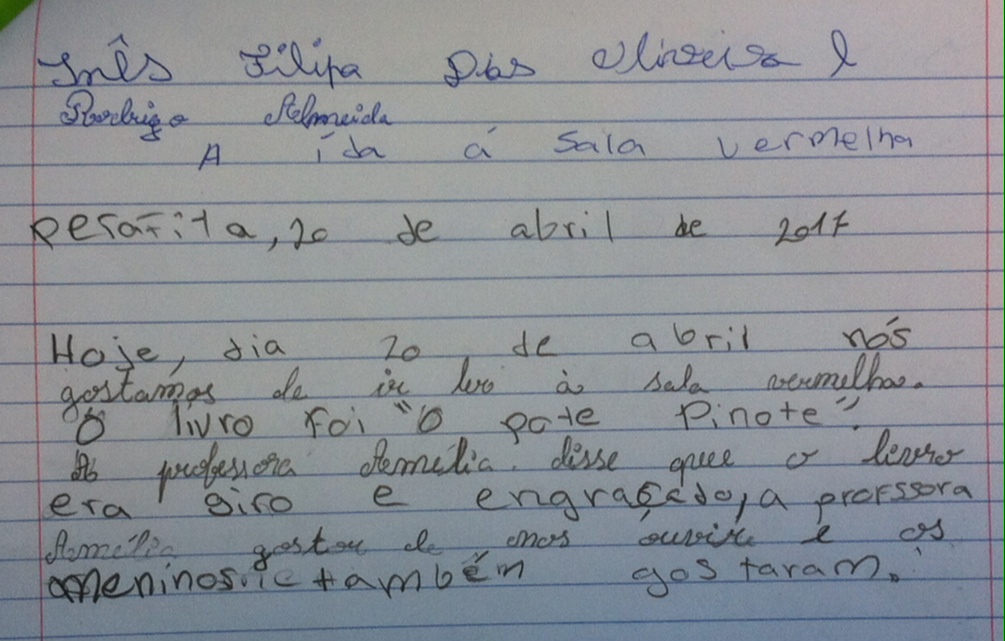 Inês Filipa Dias Oliveira e
Rodrigo Almeida
A ída á Sala vermelha
Perafita, 20 de abril de 2017
Hoje, dia 20 de abril nós
gostamos de ir ler à sala vermelha.
O livro foi "O pote Pinote".
A professora Amélia disse que o livro
era giro e engraçado, a professora
Amélia gostou de nos ouvir e os
meninos também gostaram.